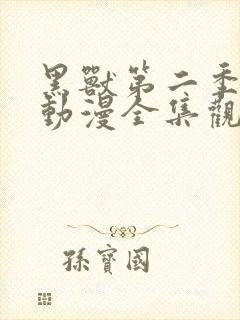 黑獸第二季
動漫全集觀
孫寶國